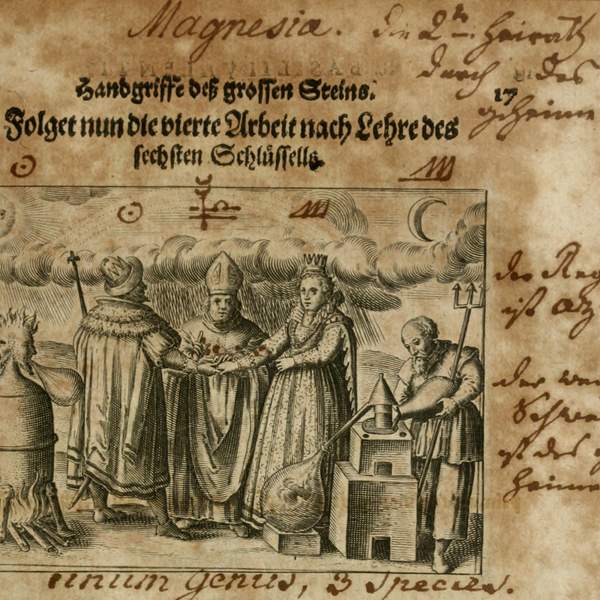 Magnesia. die 2te. Heirath
durch des
Handgriffe deß grossen Steins. 17
geheime
Folget nun die vierte Arbeit nach Lehre des
sechsten Schlüssells.
der Reg
ist
der
Schwe
ist des g
heime
unum genus, 3 species.